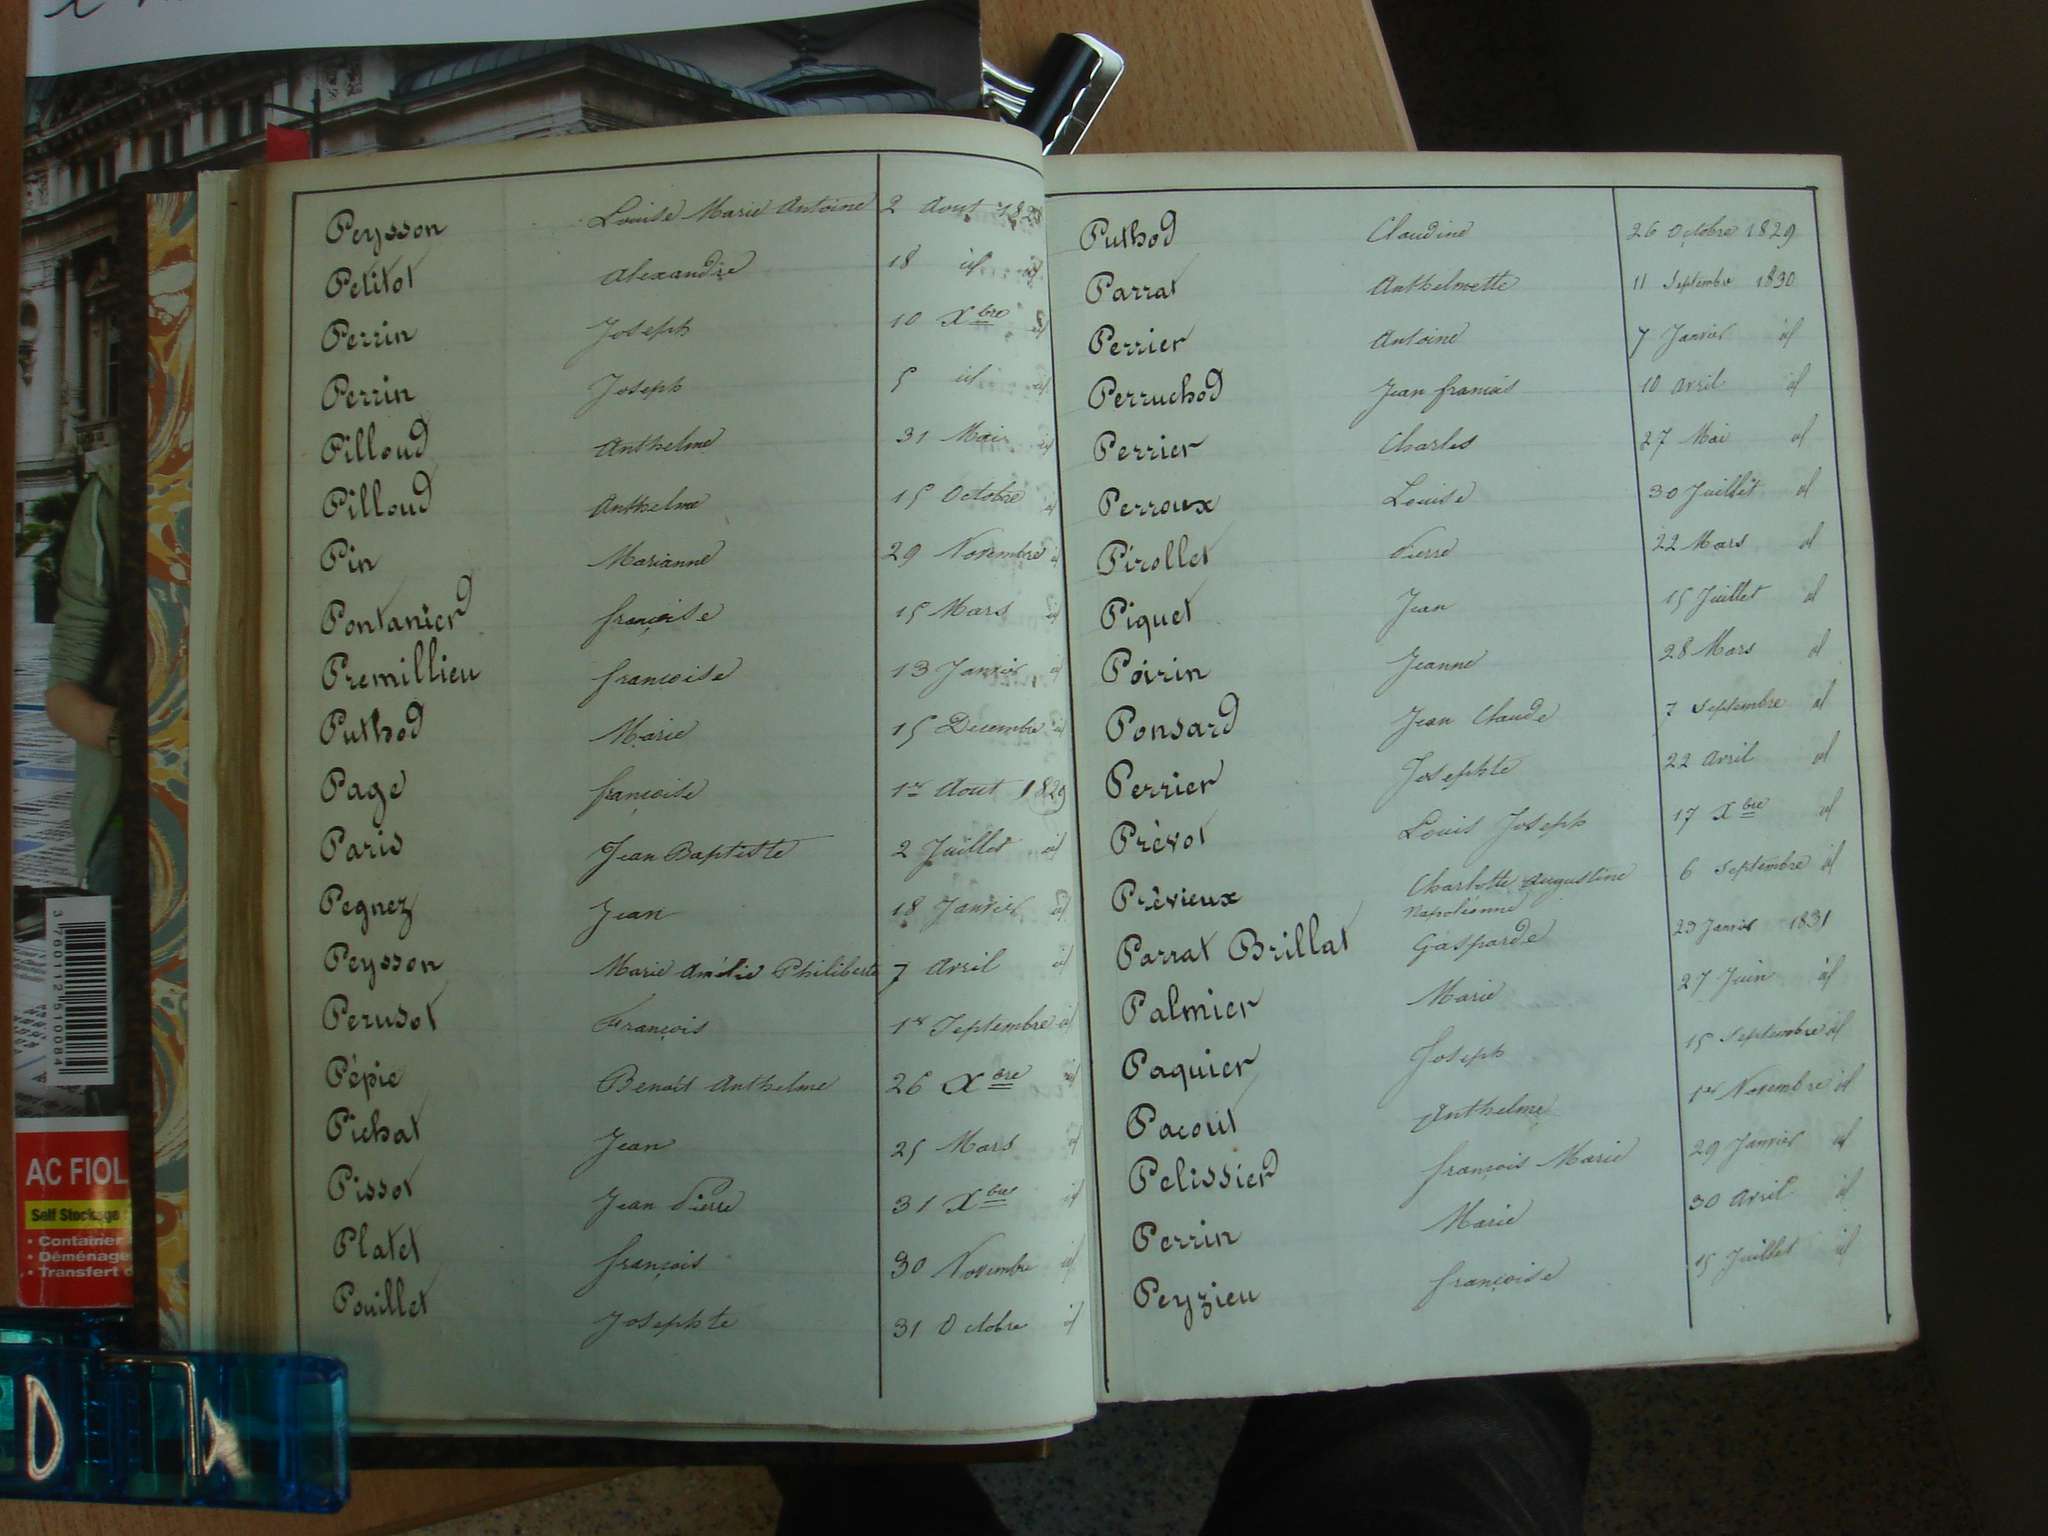 Peysson Louise Marie Antoine 2 Aout 1828
Petitot Alexandre 18 id id
Perrin Joseph 10 Xbre id
Perrin Joseph 5 id id
Pilloud Anthelme 31 Mai id
Pilloud Anthelme 15 Octobre id
Pin Marianne 29 Novembre id
Pontanierd françoise 15 Mars id
Premillieu françoise 13 Janvier id
Puthod Marie 15 Decembre id
Page françoise 1er Aout 1829
Paris Jean Baptiste 2 Juillet id
Pegnez Jean 18 Janvier id
Peysson Marie Amélie Philiberte 7 Avril id
Perusot François 1er Septembre id
Pépie Benoit Anthelme 26 Xbre id
Pichat Jean 25 Mars id
Pissot Jean Pierre 31 Xbre id
Platet françois 30 Novembre id
Pouillet Josephte 31 Octobre id
Puthod Claudine 26 Octobre 1829
Parrat Anthelmette 11 Septembre 1830
Perrier Antoine 7 Janvier id
Perruchod Jean francois 10 Avril id
Perrier Charles 27 Mai id
Perroux Louise 30 Juillet id
Pirollet Pierre 22 Mars id
Piquet Jean 15 Juillet id
Poirin Jeanne 28 Mars id
Ponsard Jean Claude 7 Septembre id
Perrier Josephte 22 Avril id
Prévot Louis Joseph 17 Xbre id
Prévieux Charlotte Augustine 6 Septembre id
Napoléonne
Parrat Brillat Gasparde 23 Janvier 1831
Palmier Marie 27 Juin id
Paquier Joseph 15 Septembre id
Pacout Anthelme 1er Novembre id
Pelissierd françois Marie 29 Janvier id
Perrin Marie 30 Avril id
Peyzieu françoise 15 Juillet id
3 760112 510084
AC FIOL
Self Stockage
• Container
• Déménage
• Transfert d